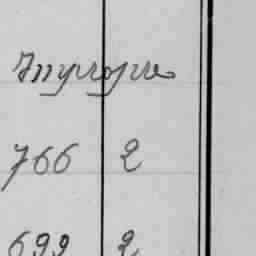 Impropre
766 2
699 2